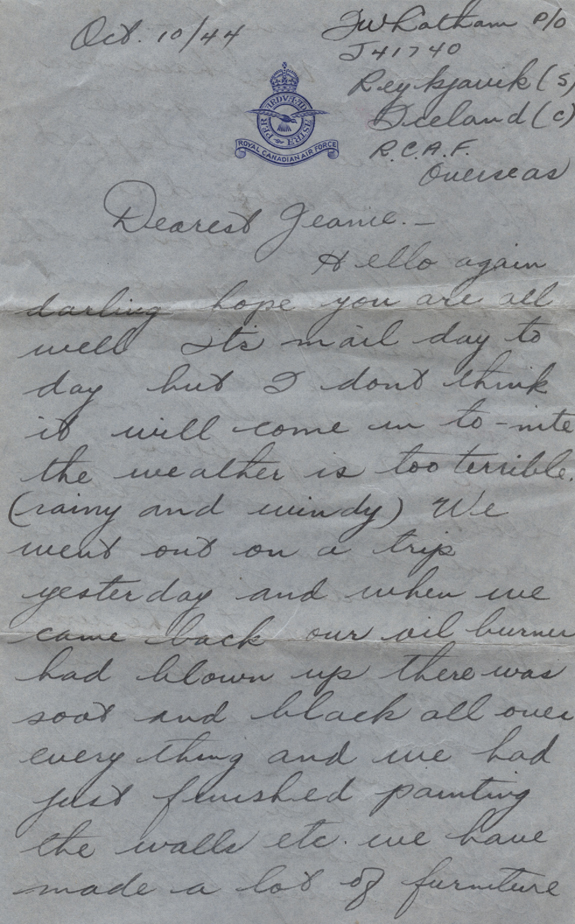 Oct. 10/44
JW Latham P/O
J41740
Reykjavik (S)
Iceland (C)
R.C.A.F.
Overseas
PER ARDUA AD ASTRA
ROYAL CANADIAN AIR FORCE
Dearest Jeanie.—
Hello again
darling hope you are all
well its mail day to
day but I dont think
it will come in to-nite
the weather is too terrible.
(rainy and windy) We
went out on a trip
yesterday and when we
came back our oil burner
had blown up there was
soot and black all over
every thing and we had
just finished painting
the walls etc. we have
made a lot of furniture